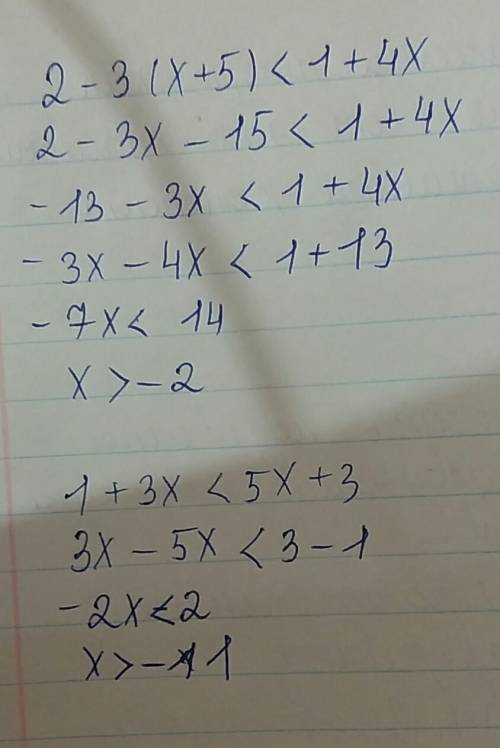 2 - 3 (x+5) < 1 + 4x
2 - 3x - 15 < 1 + 4x
-13 - 3x < 1 + 4x
-3x - 4x < 1 + 13
-7x < 14
x > -2
1 + 3x < 5x + 3
3x - 5x < 3 - 1
-2x < 2
x > -1